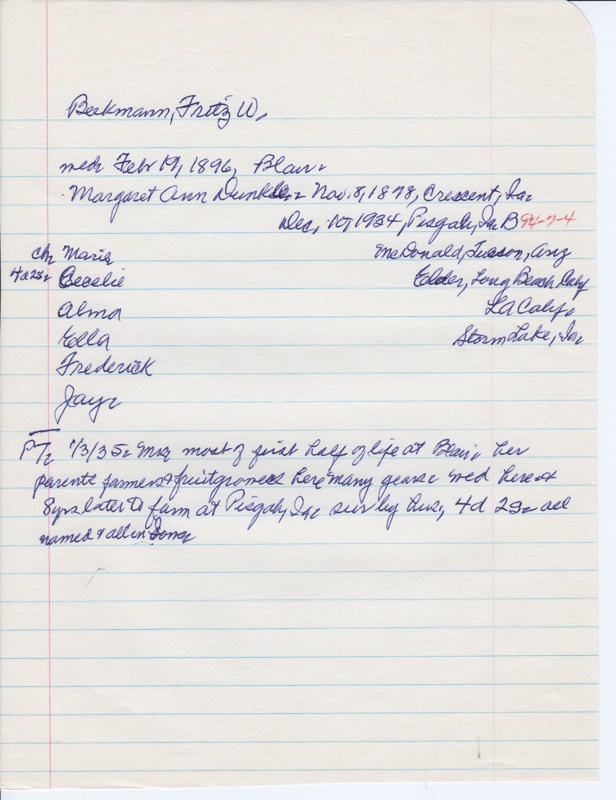 Beekmann, Fritz W.
med. Febr 19, 1896, Blair.
Margaret Ann Nov. 8, 1878, Crescent, Ia.
Dec, 1934, Pisgah, Ia B 94-7-4
ch. Marie McDonald, Tucson, Ariz
4d 2s. Cecelie Elder, Long Beach Calif
Alma LA Calif.
Ella Storm Lake, Ia.
Frederick
Jay.
PT. 1/3/35. Mrs most of first half of life at Blair. her
parents farmers & fruitgrowers here many years. wed here &
8 yrs later to farm at Pisgah, Ia. sur by hus, 4d 2s. all
named & all in